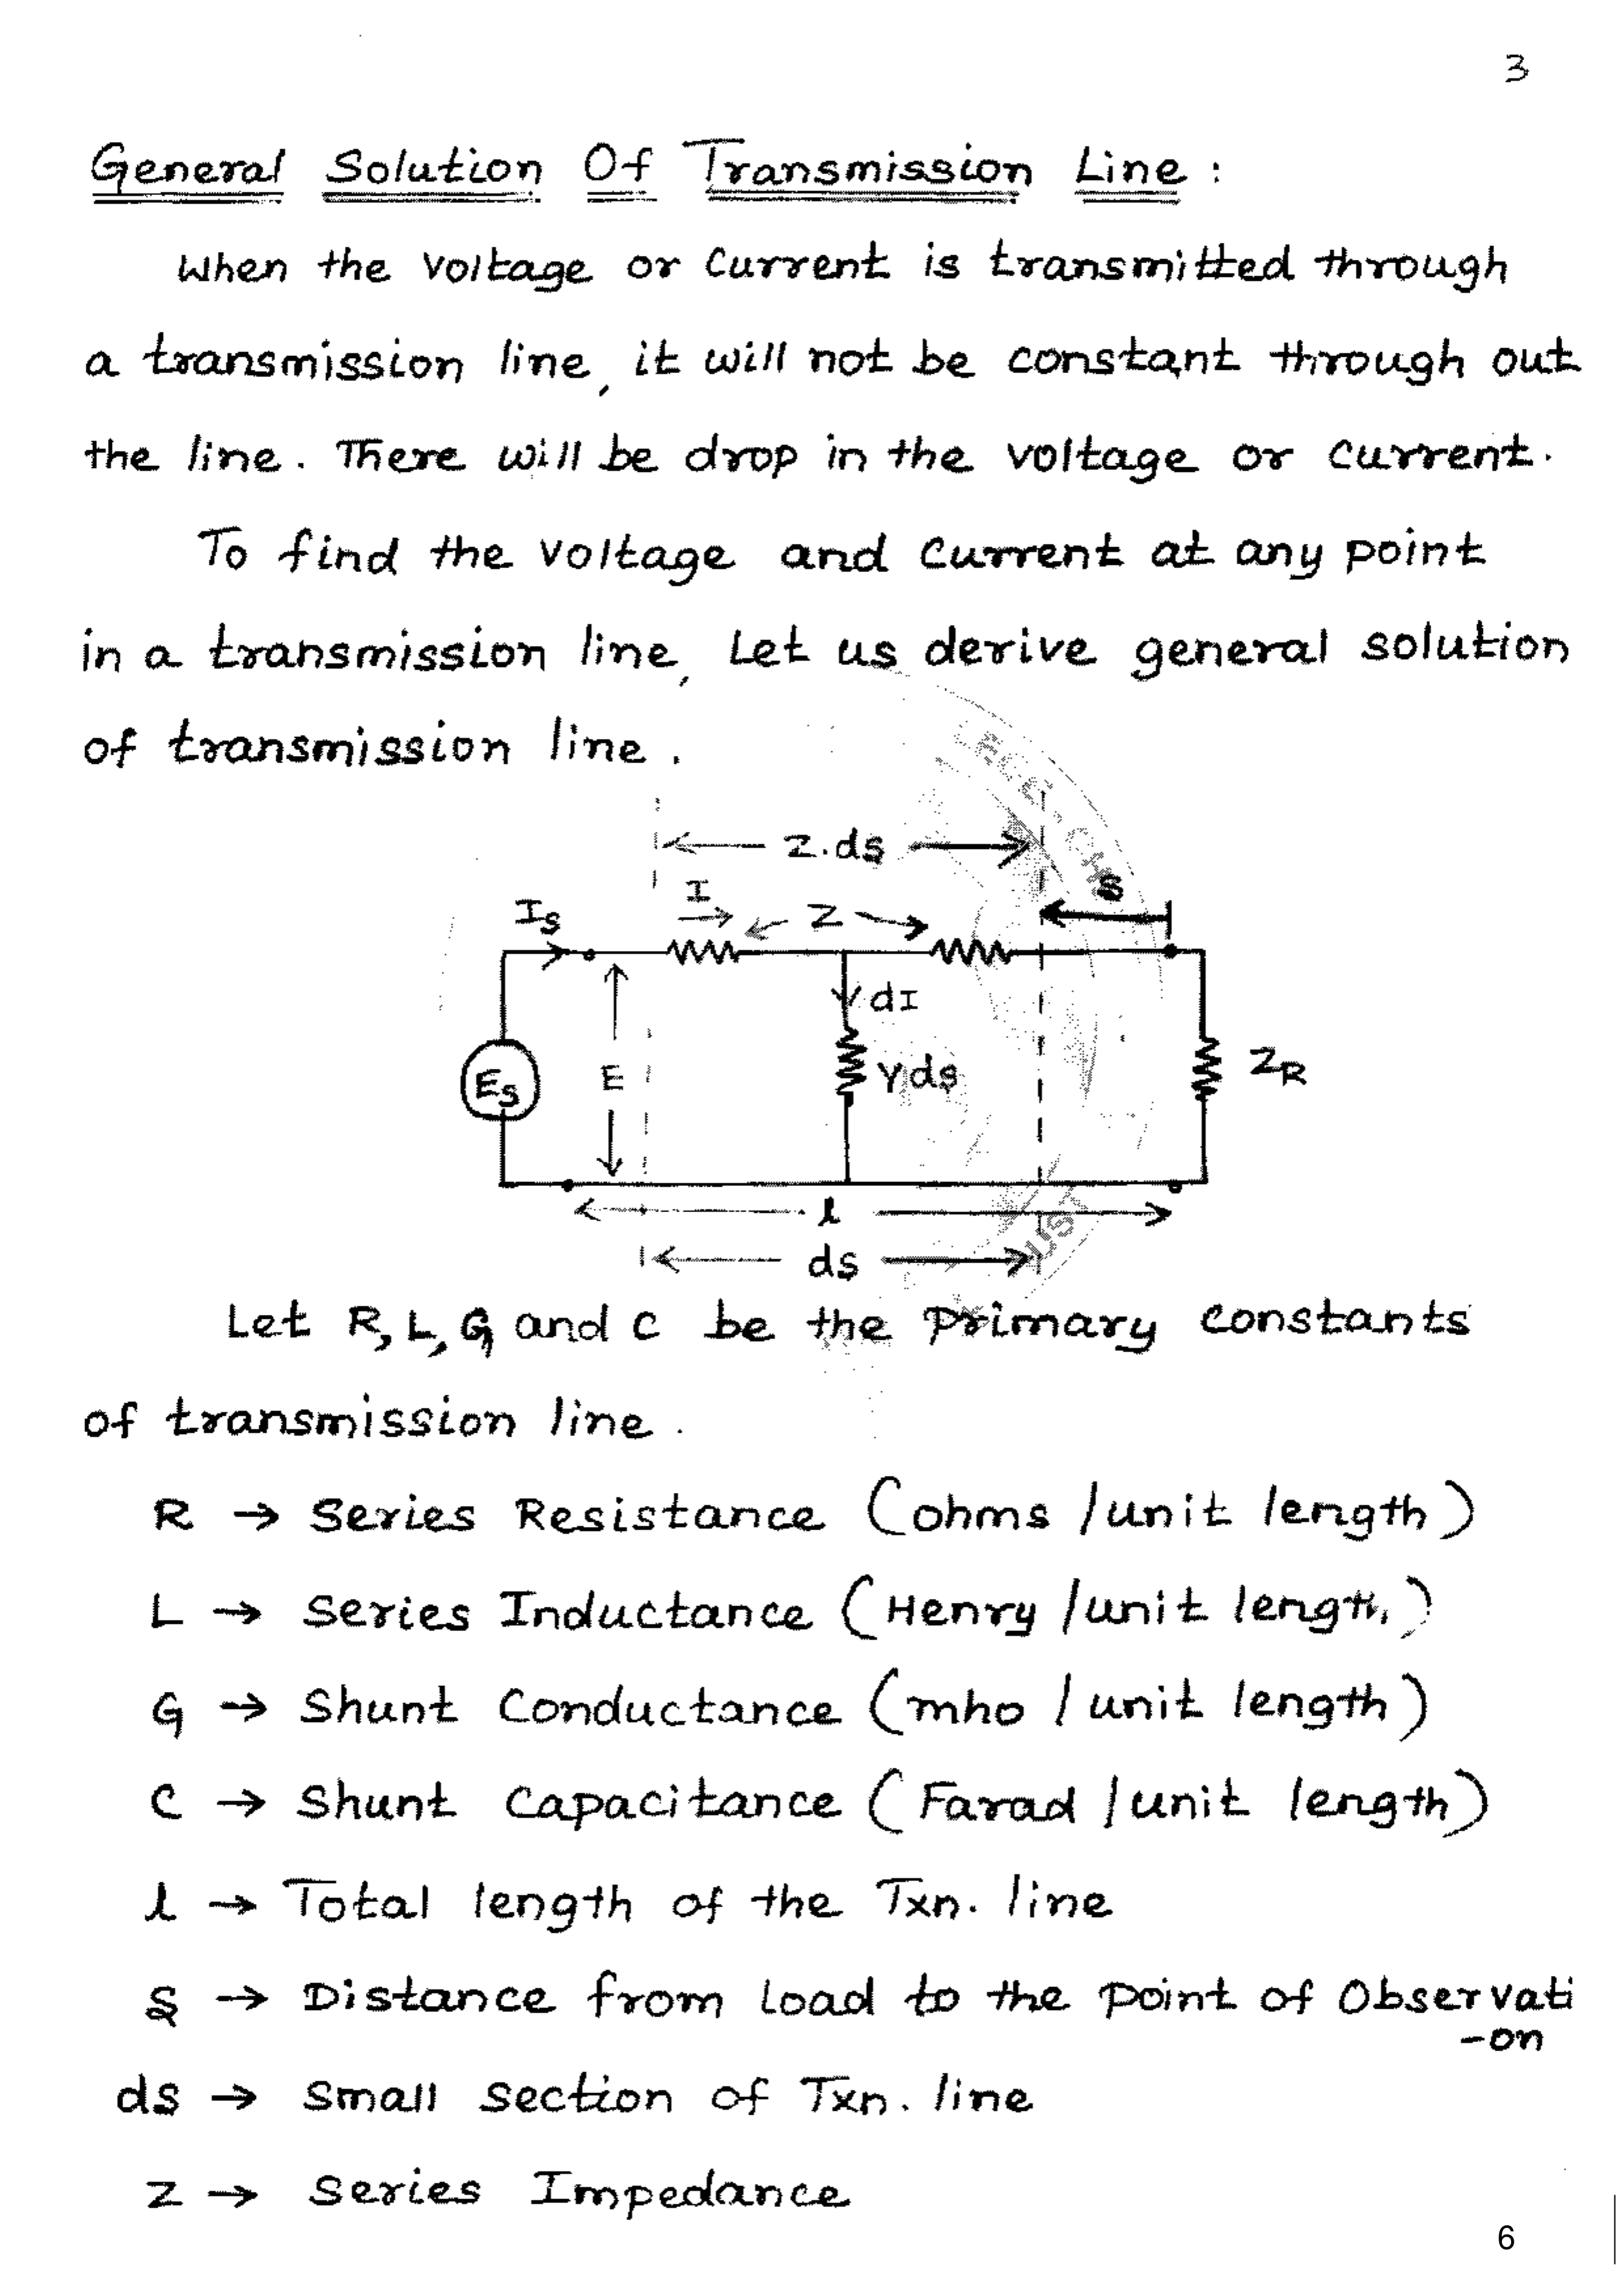 3
General Solution Of Transmission Line :
When the voltage or current is transmitted through
a transmission line, it will not be constant through out
the line. There will be drop in the voltage or current.
To find the voltage and current at any point
in a transmission line, Let us derive general solution
of transmission line.
Z.ds
S
I
Z
Is
dI
E
Es
Yds
ZR
l
ds
Let R, L, G, and C be the Primary constants
of transmission line.
R → Series Resistance (ohms /unit length)
L → Series Inductance (Henry /unit length)
G → Shunt Conductance (mho / unit length)
C → Shunt Capacitance (Farad /unit length)
l → Total length of the Txn. line
S → Distance from Load to the point of Observati
-on
ds → Small section of Txn. line
Z → Series Impedance
6